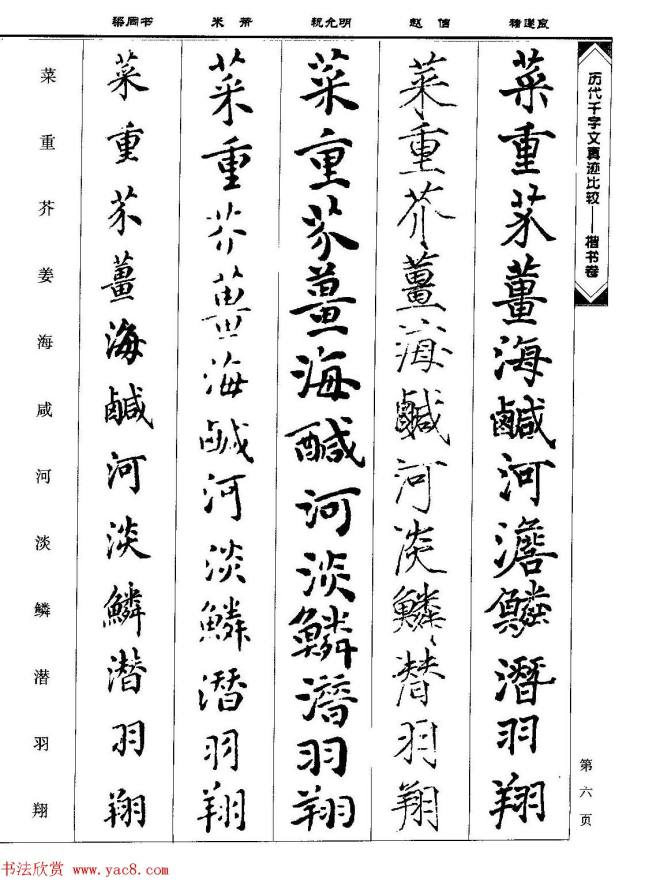 历代千字文真迹比较——楷书卷
第六页
褚遂良
菜重芥薑海鹹河澹鱗潛羽翔
赵佶
菜重芥薑海鹹河淡鱗潜羽翔
祝允明
菜重芥薑海醎河淡鱗潛羽翔
米芾
菜重芥薑海鹹河淡鱗潛羽翔
梁同书
菜重芥薑海鹹河淡鱗潜羽翔
菜重芥姜海咸河淡鳞潜羽翔
书法欣赏 www.yac8.com